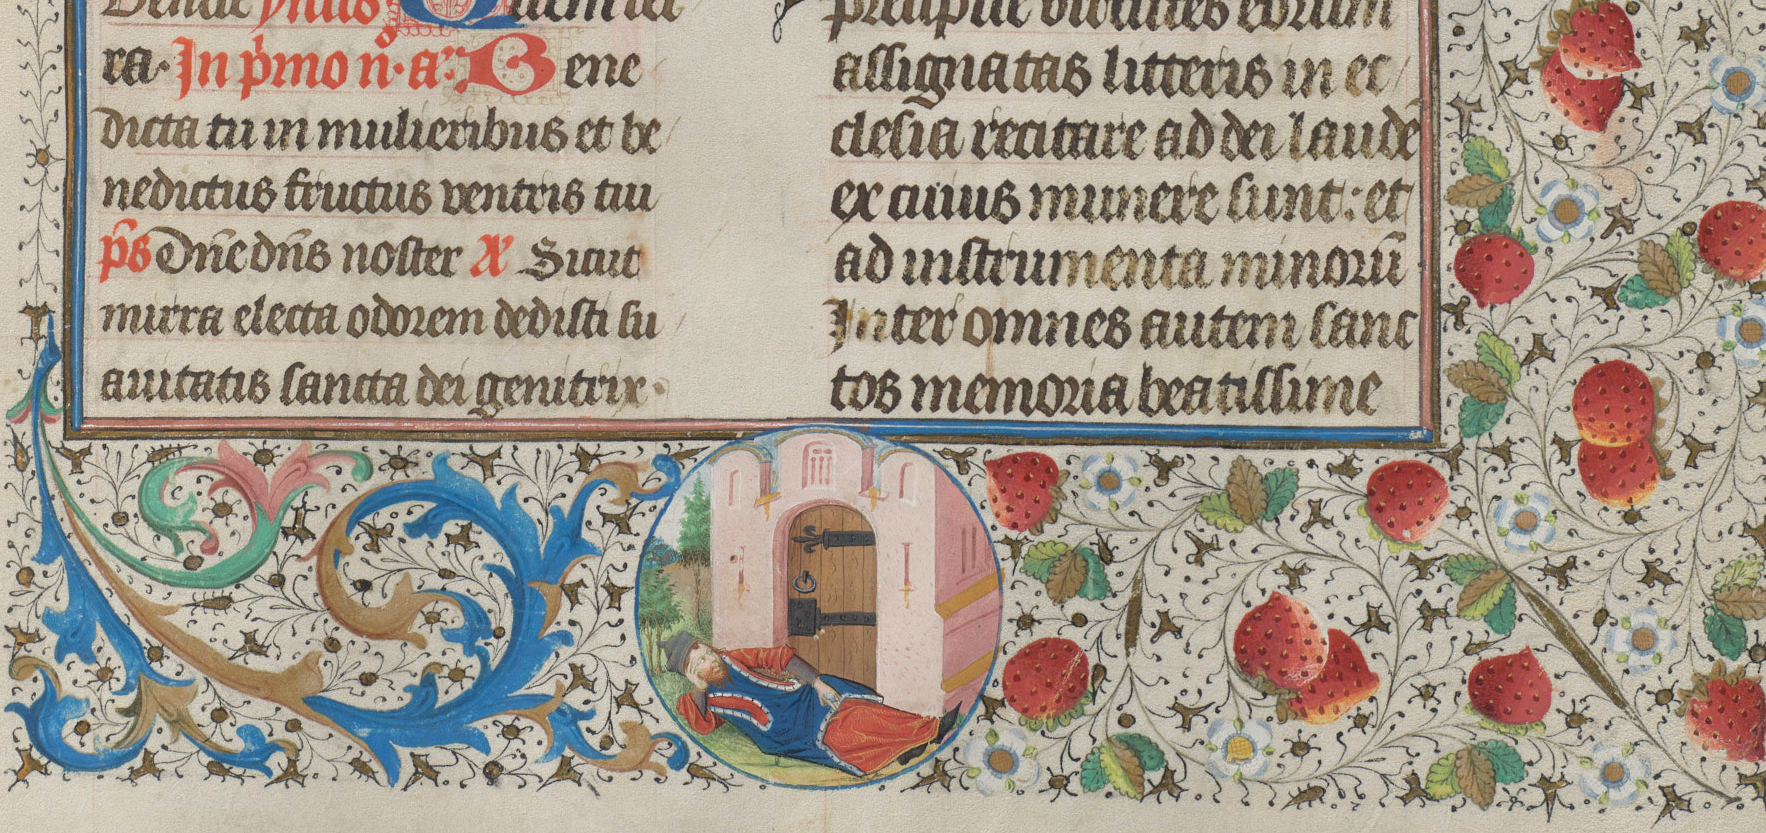 ra· In pͥmo nͦ· a᷑· Bene
dicta tu in mulieribus et be
nedictus fructus ventris tui
p̄s Dn̄e dn̄s noster A᷑ Sicut
mirra electa odorem dedisti su
auitatis sancta dei genitrix·
precipue virtutes eorum
assignatas litteris in ec
clesia recitare ad dei laudē
ex cuius munere sunt: et
ad instrumenta minorū
Inter omnes autem sanc
tos memoria beatissime